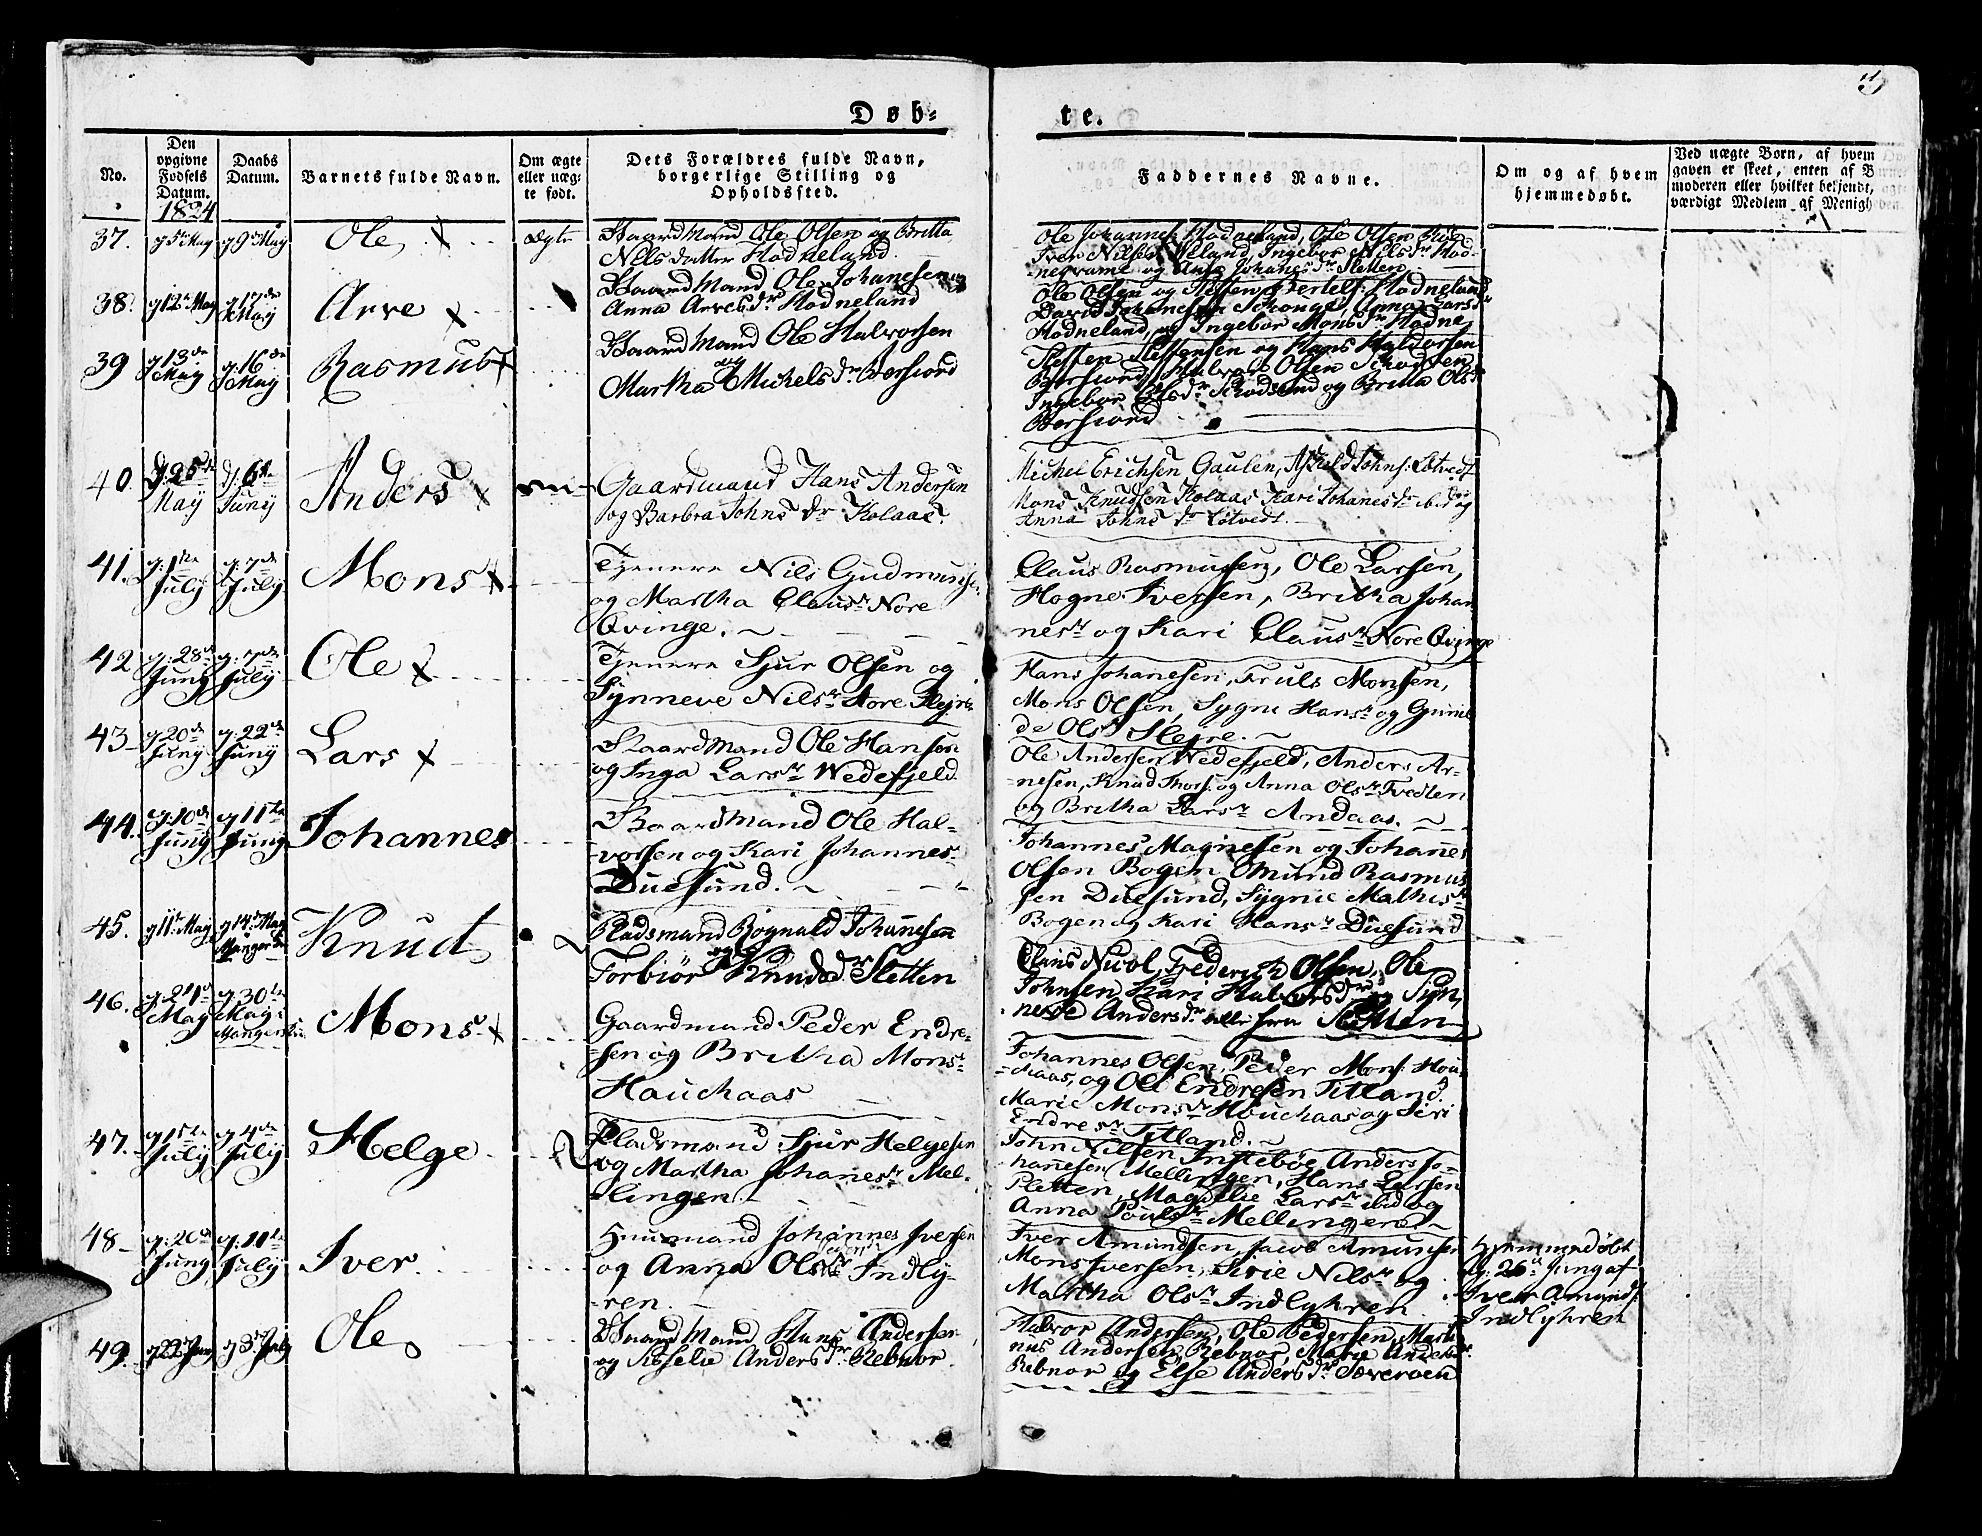 5
Døb-
te.
No.
Den opgivne Fødsels Datum.
Daabs Datum.
Barnets fulde Navn.
Om ægte eller uægte født.
Dets Forældres fulde Navn, borgerlige Stilling og Opholdssted.
Faddernes Navne.
Om og af hvem hjemmedøbt.
Ved uægte Børn, af hvem
gaven er skeet, enten af
moderen eller hvilket bekjendt,
værdigt Medlem af Menigh
1824
37.
g 5te May
g 9de May
Ole
ægte
Gaardmand Ole Olsen og Britta
Nels datter Hodneland
Ole Johannes Hodneland, Ole Olsen
Iver Nilsen Weland, Ingebor Nils dr Hod-
og Anna Johanes dr Sletten
38.
g 12te May
g 17de May
Arve
Gaardmand Ole Johanesen og
Anna Arves dr Hodneland
Ole Olsen og Steffen Bertels: Hodneland
David Johanesen Schouge, Anna Lars dr
Hodneland, og Ingebor Mons dr Hodne
39
g 13de May
g 16de May
Rasmus
Gaardmand Ole Halvorsen
og
Martha Michels dr Børsiord
Steffen Steffensen og Hans Halvorsen
Børsiord, Halvor Olsen
Ingebor Ols dr og Britta Ols dr
Børsiord
40.
d: 25de May
d: 6te Juny
Anders
Gaardmand Hans Andersen
og Barbra Johns dr Kolaas
Michel Erichsen Gaulen, Johns: Løtvedt
Mons Knudsen Kolaas Kari Johanes dr ibid og
Anna Johns dr Løtvedt.
41.
g: 1ste July
g: 7de July
Mons
Tjenere Nils Gudmunds:
og Martha Clausdr Nore
Qvinge.
Claus Rasmussen, Ole Larsen,
Hogne Iversen, Britha Johan
nesdr og Kari Clausdr Nore Qvinge
42
g: 28de Juny
g: 7de July
Ole
Tjenere Sjur Olsen og
Synneve Nilsdr Store
Hans Johanesen, Truls Monsen,
Mons Olsen, Sygni Hansdr og Gunil
de Olsdr Slejre.
43
g 20de Juny
g: 22de Juny
Lars
Gaardmand Ole Hansen
og Inga Larsdr Wedefjeld
Ole Andersen Wedefjeld, Anders Ar-
nesen, Knud Thors: og Anna Olsdr Tvedten
og Britha Larsdr Andaas.
44.
g: 10de Juny
g 11te Juny
Johannes
Gaardmand Ole Hal-
vorsen og Kari Johannes-
Duesund.
Johannes Magnesen og Johanes
Olsen Bogen Omund Rasmus
sen Duesund, Sygnie Mathisdr
Bogen og Kari Hansdr Duesund
45.
g 11te May
g 14de May
Manger
Knud
Pladsmand Rognald Johanesen
og
Torbiør Knuds dr Sletten
Claus Nicol, Frederich Olsen, Ole
Johnsen, Kari Halvors dr og Syn,
neve Anders dr alle fra Sletten
46.
g: 21de May
g: 30te May i Manger
Mons
Gaardmand Peder Endre-
sen og Britha Monsdr
Hauchaas
Johannes Olsen, Peder Mons: Hou-
chaas, og Ole Endresen Titland,
Marie Monsdr Houchaas og Siri
Endresdr Titland.
47.
g 1ste July
g 4de July
Helge
Pladsmand Sjur Helgesen
og Martha Johanesdr Mel-
lingen
John Nilsen Instebøe Anders Jo-
hanesen Mellingen, Hans Larsen
Sletten, Magdelie Larsdr ibid og
Anna Poulsdr Mellingen
48
g: 20de Juny
g: 11te July
Iver
Huusmand Johannes Iversen
og Anna Olsdr Indly-
ren.
Iver Amundsen, Jacob Amunsen
Mons Iversen, Sirie Nilsdr og
Martha Olsdr Indlyhren
Hjemmedøbt
g: 26de Juny af
Iver Amunds:
Indlyhren
49
g 22de Juny
g 3de July
Ole
Gaardmand Hans Andersen
og Sisselie Anders dr Rebnor
Halvor Andersen, Ole Pedersen, Marti-
nus Andersen Rebnor, Marie Anders dr
Rebnor og Else Anders dr Særvoen